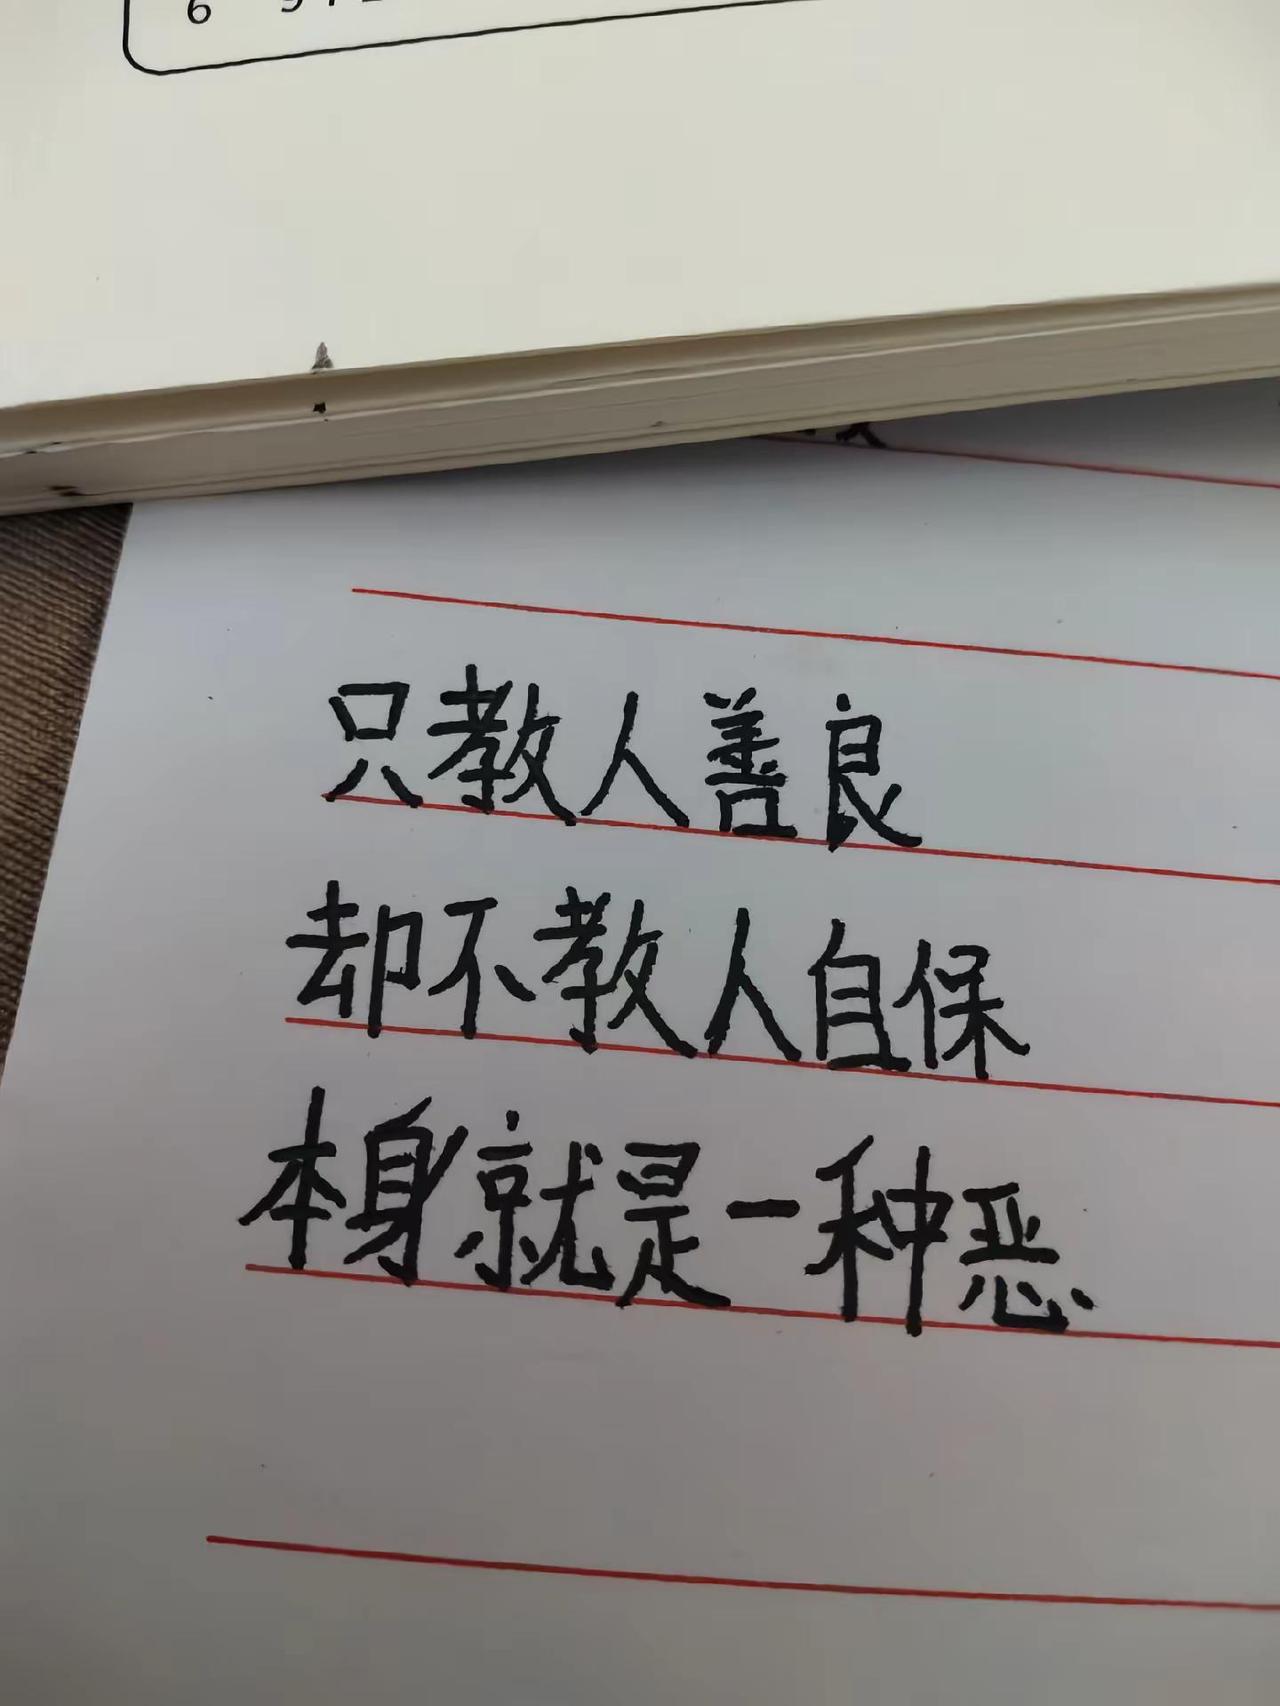 6
只教人善良
却不教人自保
本身就是一种恶